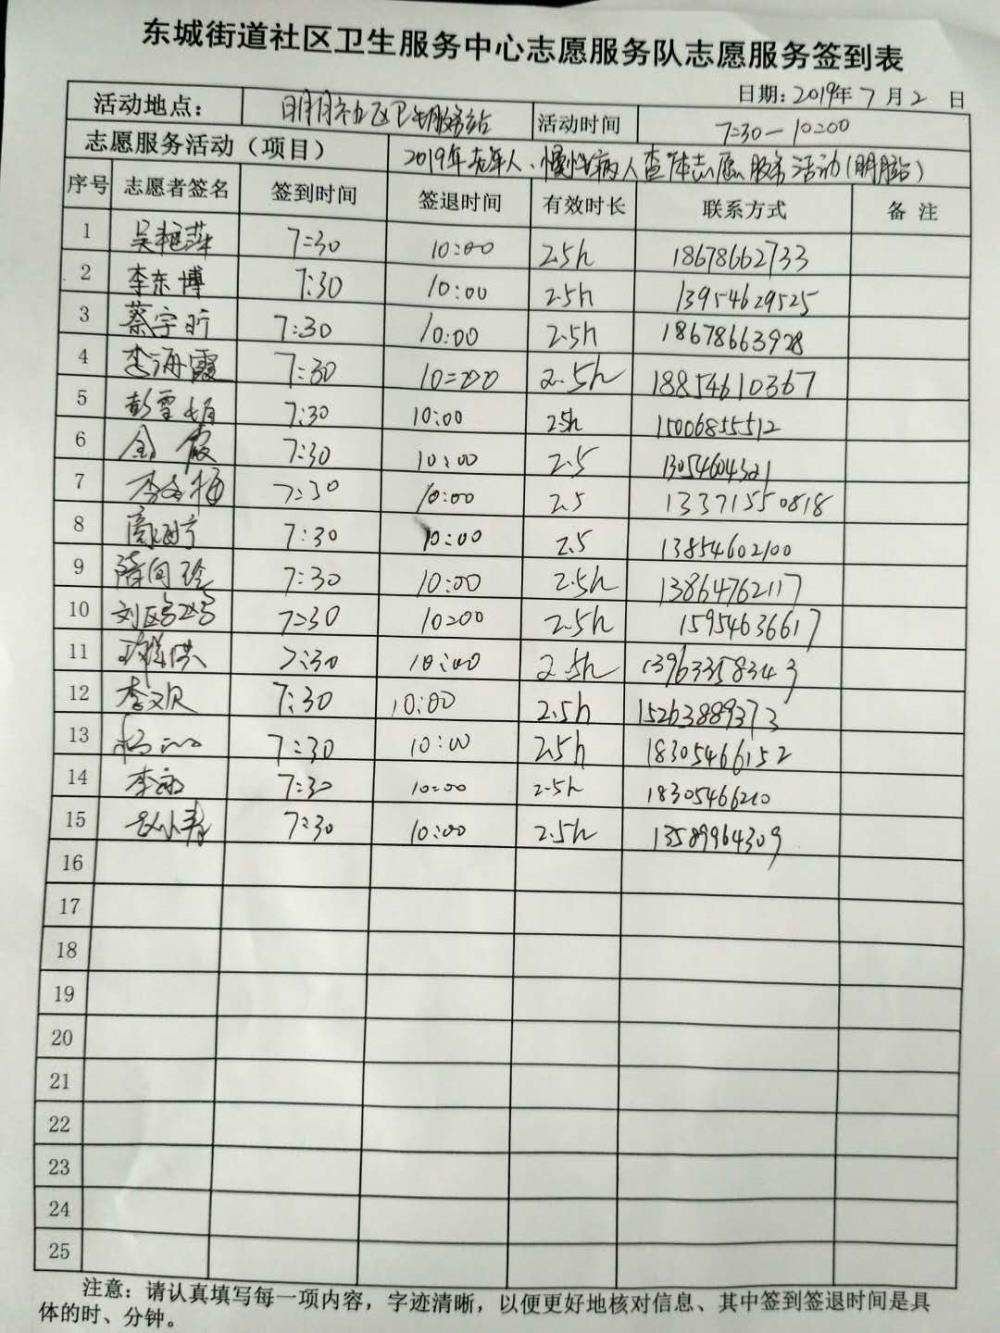 东城街道社区卫生服务中心志愿服务队志愿服务签到表
日期：2019年7月2日
活动地点： 明月社区卫生服务站 活动时间 7:30-10:00
志愿服务活动（项目） 2019年老年人、慢性病人查体志愿服务活动(明月站)
序号 志愿者签名 签到时间 签退时间 有效时长 联系方式 备注
1 吴艳萍 7:30 10:00 2.5h 18678662733
2 李东博 7:30 10:00 2.5h 13954629525
3 蔡宇昕 7:30 10:00 2.5h 18678663928
4 李海霞 7:30 10:00 2.5h 18854610367
5 彭雪娟 7:30 10:00 2.5h 15006855512
6 金霞 7:30 10:00 2.5 13054604321
7 7:30 10:00 2.5 13371550818
8 7:30 10:00 2.5 13854602100
9 7:30 10:00 2.5h 13864762117
10 刘 7:30 10:00 2.5h 15954636617
11 7:30 10:00 2.5h 13963358343
12 李文欣 7:30 10:00 2.5h 15263889373
13 杨 7:30 10:00 2.5h 18305466152
14 李 7:30 10:00 2.5h 18305466210
15 赵小青 7:30 10:00 2.5h 13589964309
16
17
18
19
20
21
22
23
24
25
注意：请认真填写每一项内容，字迹清晰，以便更好地核对信息、其中签到签退时间是具
体的时、分钟。